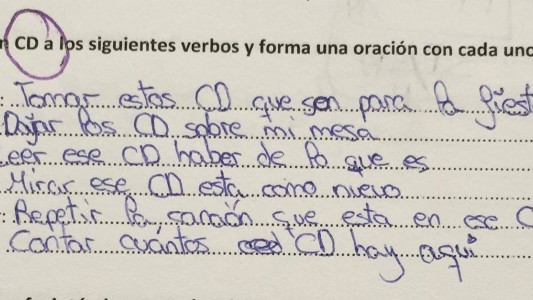 CD a los siguientes verbos y forma una oración con cada uno
: Tomar estos CD que son para la fiest
Dejar los CD sobre mi mesa
Leer ese CD haber de lo que es
Mirar ese CD esta como nuevo
: Repetir la canción que esta en ese C
Contar cuántos CD hay aquí